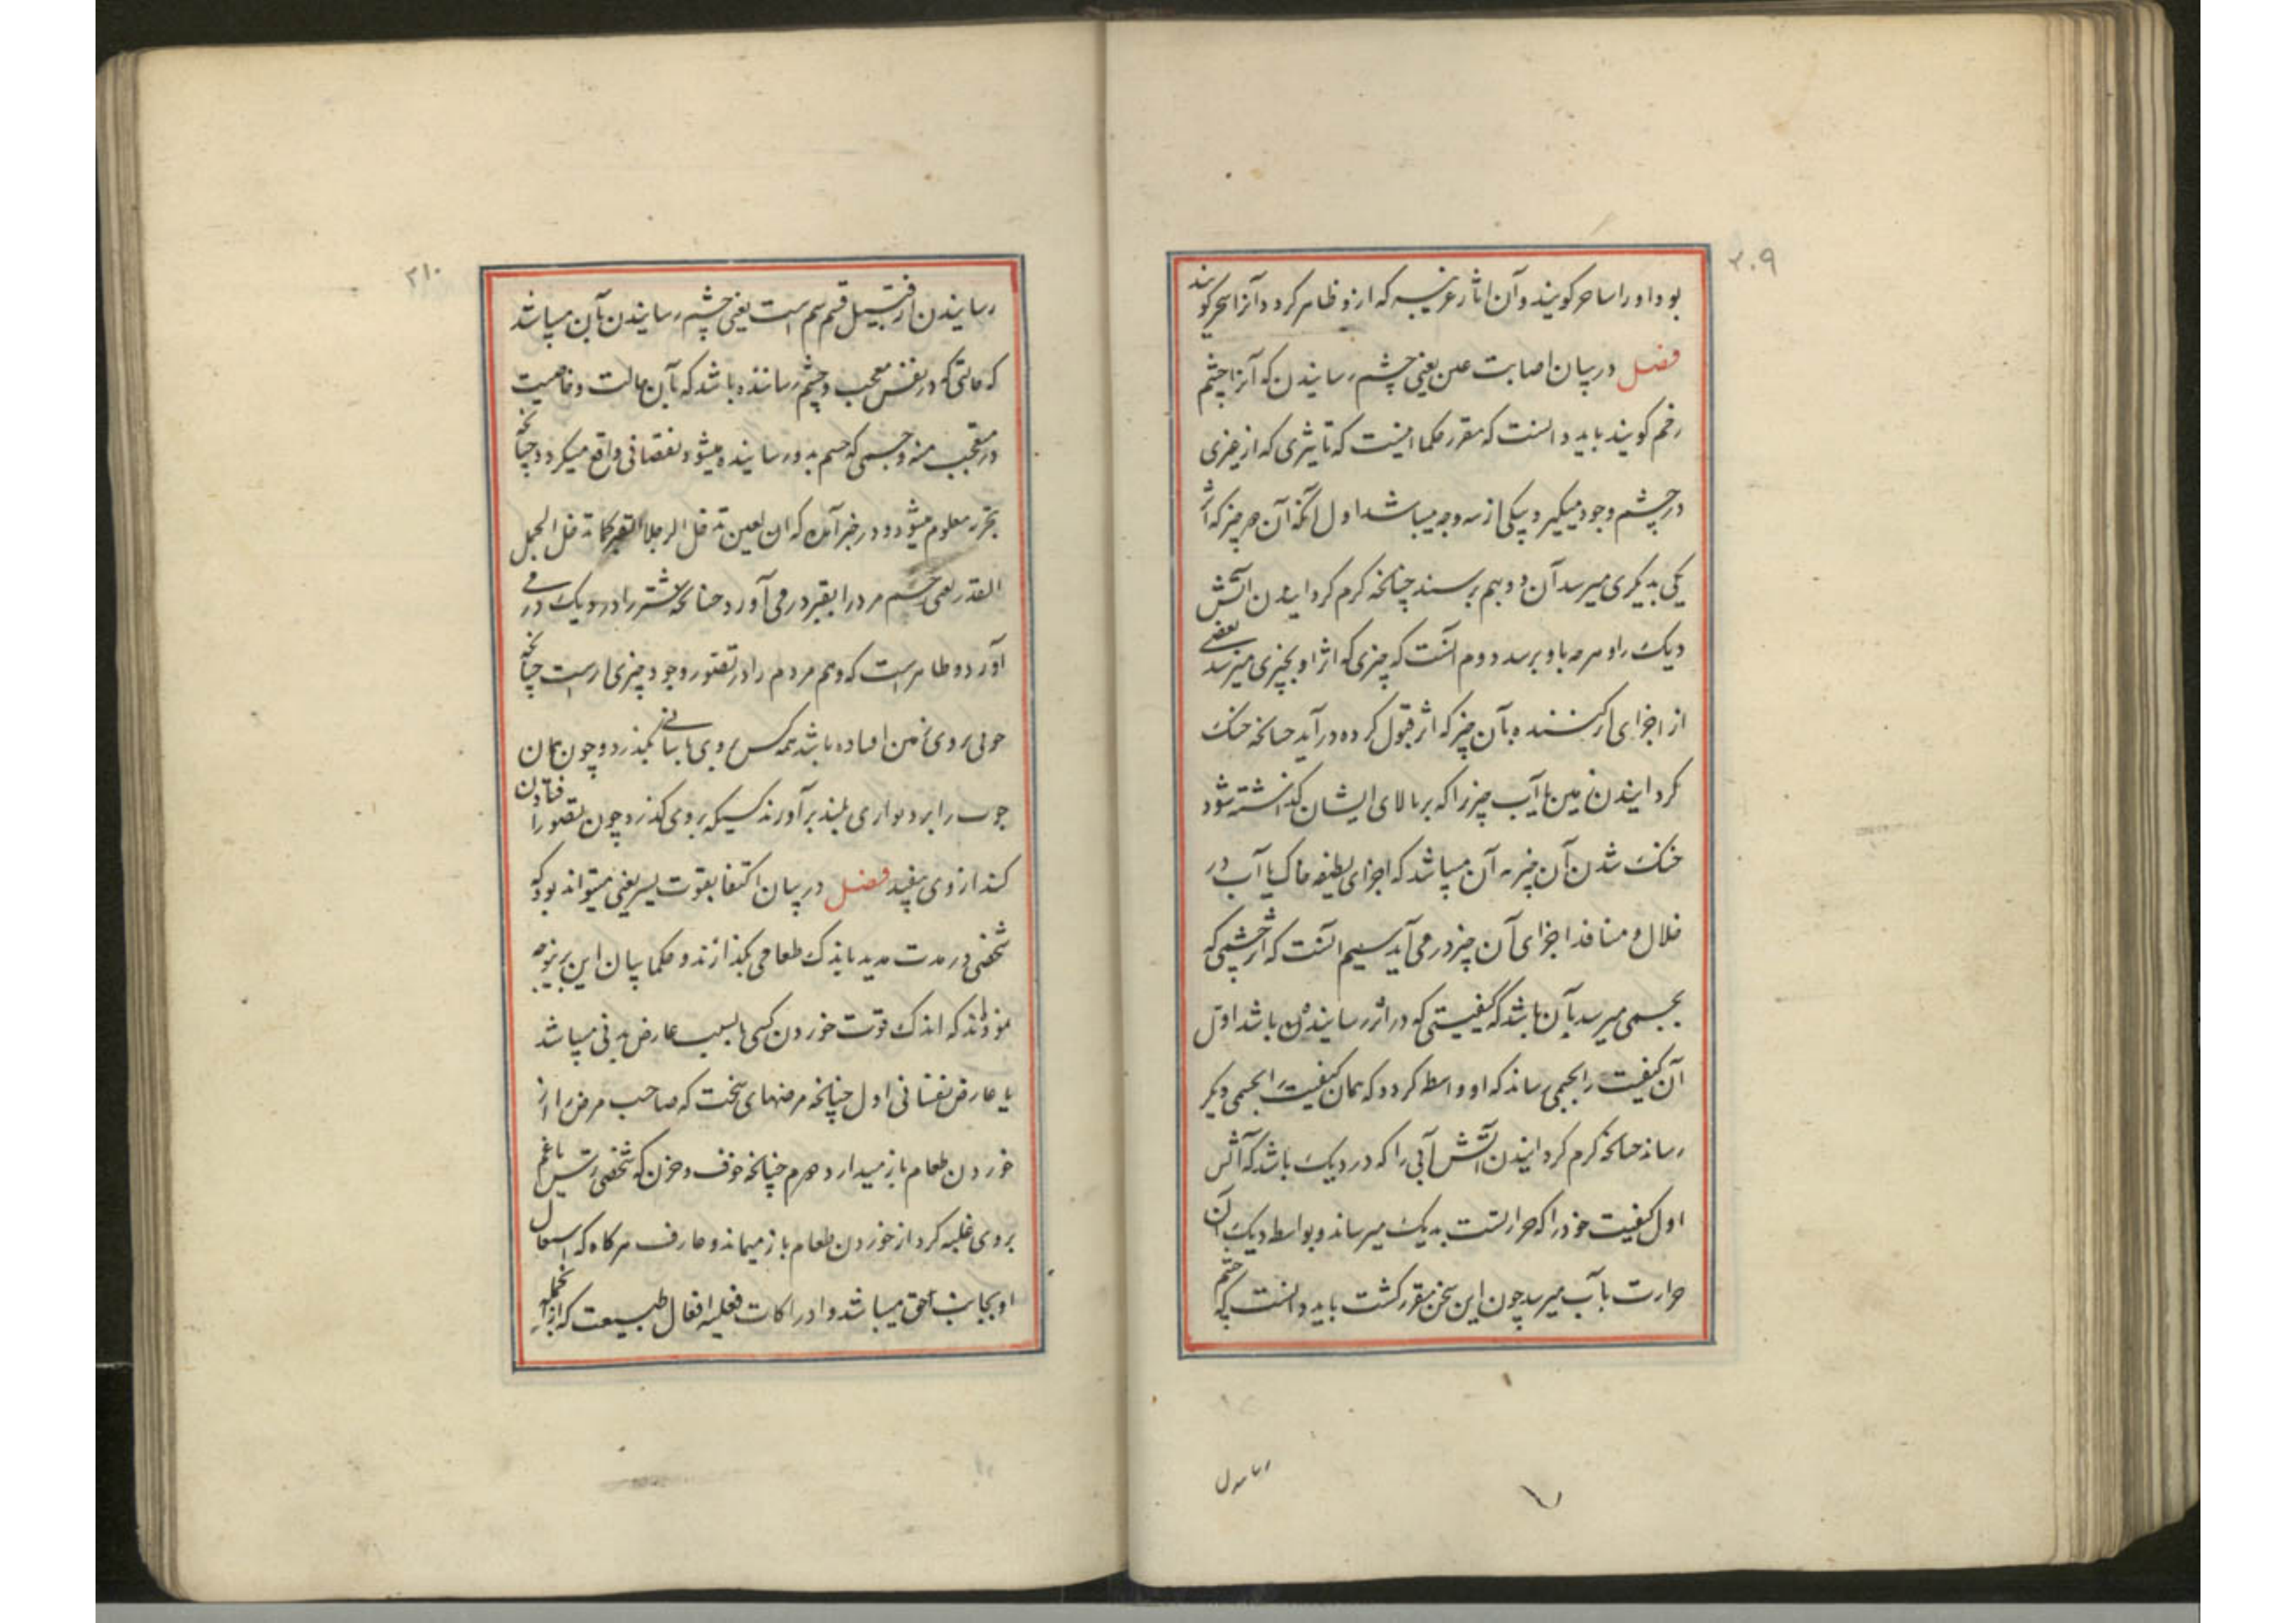 ۲۰۹
بود او را ساحر کویند و آن اثار غریبه که ازو ظاهر کردد آنرا سحر کویند
فصل در بیان اصابت عین یعنی چشم رسایندن که آنرا چشم
زخم کویند باید دانست که مقرر حکما اینست که تاثیری که از چیزی
در چشم وجود میکیرد یکی از سه وجه میباشد اول آنکه آن هر چیز که اثر
یکی بدیکری میرسد آن دو بهم برسند چنانخه کرم کردایندن آتش
دیک را و هر چه باو برسد دوم آنست که چیزی که اثر او بچیزی میرسد بعضی
از اجزای اثر کننده بآن چیز که اثر قبول کرده در آید چنانخه خنک
کردایندن زمین یا آب چیز را که بر بالای ایشان کذاشته شود
خنک شدن آن چیز به آن میباشد که اجزای لطیفه خاک یا آب در
خلال و منافذ اجزای آن چیز در می آید سیم آنست که اثر چشمی که
بجسمی میرسد بآن باشد که کیفیتی که در اثر رساینده باشد اول
آن کیفیت را بجسمی رساند که او واسطه کردد که همان کیفیت را بجسمی دیکر
رساند چنانخه کرم کردایندن آتش آبی را که در دیک باشد که آتش
اول کیفیت خود را که حرارتست بدیک میرساند و بواسطه دیک آن
حرارت بآب میرسد چون این سخن مقرر کشت باید دانست که چشم
۲۱۰
رسایندن از قبیل قسم سیم است یعنی چشم رسایندن بآن میباشد
که حالتی که در نفس معجب و چشم رسانده باشد که بآن حالت و خاصیت
در متعجب منه و جسمی که چشم بدو رسایند میشود نقصانی واقع میکردد چنانخه
بتجربه معلوم میشود و در خبر آمده که ان العین تدخل الرجل القبر کما تدخل الجمل
القدر یعنی چشم مرد را بقبر در می آورد چنانکه شتر را در دیک در می
آورد و ظاهر است که وهم مردم را در تصور وجود چیزی اثر است چنانخه
چوبی بروی زمین افتاده باشد همه کس بروی باسانی بکذرد و چون همان
چوب را بر دیواری بلند بر آورند کسیکه بروی کذرد چون تصور افتادن
کند از وی بیفتد فصل در بیان اکتفا بقوت یسیر یعنی میتواند بود که
شخصی در مدت مدید باندک طعامی بکذراند و حکما بیان این برینوجه
نموده‌اند که اندک قوت خوردن کسی یا بسبب عارض بدنی میباشد
یا عارض نفسانی اول چنانخه مرضهای سخت که صاحب مرض را از
خوردن طعام باز میدارد دوم چنانخه خوف و حزن که شخصی ترس یا غم
بروی غلبه کرد از خوردن طعام باز میماند و عارف هر کاه که اشتغال
او بجانب حق میباشد و ادراکات فعلیه افعال طبیعت که از انجمله